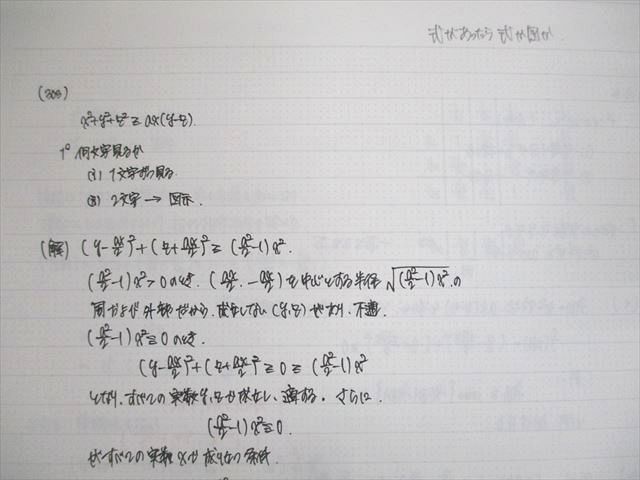 式があったら 式か図か.
(308)
x²+y²+z² ≧ ax(y-z).
1° 何文字見るか
(1) 1文字ずつ見る
(2) 2文字 → 図示.
(解) (y-ax/2)²+(z+ax/2)² ≧ (a²/2-1)x².
(a²/2-1)x²>0 のとき. (ax/2, -ax/2) を中心とする半径 √(a²/2-1)x² の
周および外部だから, 成立しない (y,z) があり, 不適.
(a²/2-1)x²≦0 のとき.
(y-ax/2)²+(z+ax/2)² ≧ 0 ≧ (a²/2-1)x²
となり, すべての実数y,zで成立し, 適する. さらに.
(a²/2-1)x²≦0.
がすべての実数xで成り立つ条件.